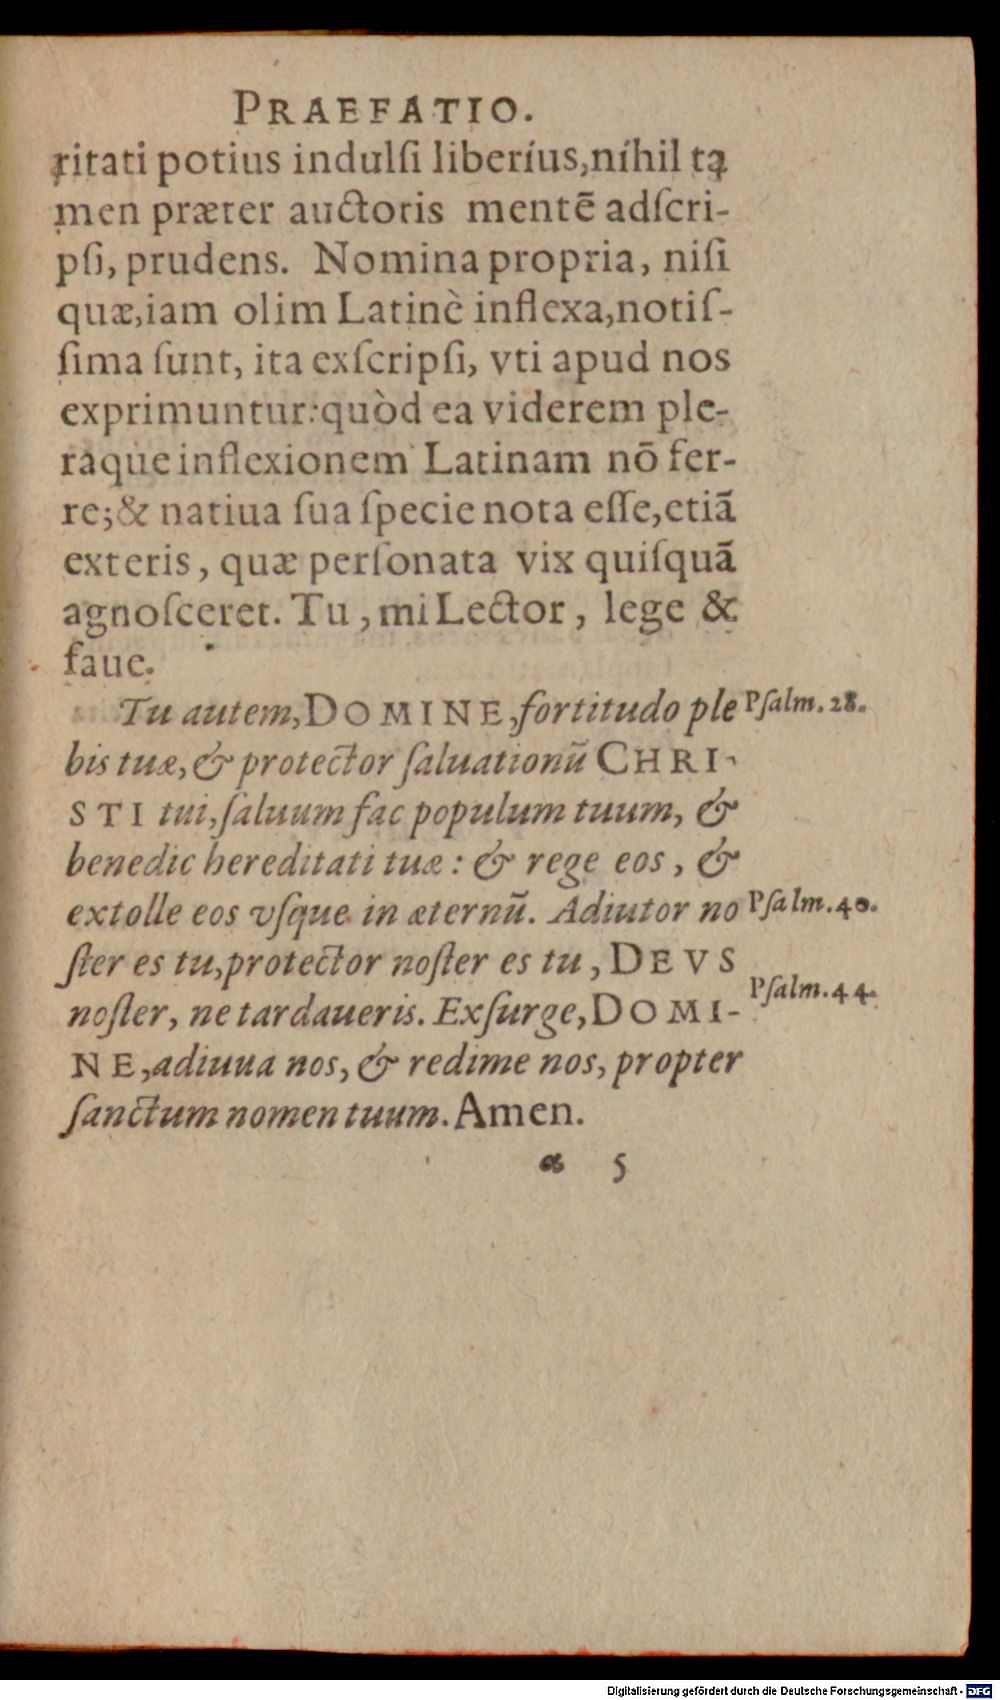 PRAEFATIO.
ritati potius indulſi liberíus,níhil ta
men præter auctoris mentē adſcri-
pſi, prudens. Nomina propria, niſi
quæ,iam olim Latinè inflexa,notiſ-
ſima ſunt, ita exſcripſi, vti apud nos
exprimuntur:quòd ea viderem ple-
raque inflexionem Latinam nō fer-
re;& natiua ſua ſpecie nota eſſe,etiā
exteris, quæ perſonata vix quiſquā
agnoſceret. Tu, mi Lector, lege &
faue.
Tu autem, DOMINE, fortitudo ple Pſalm. 28.
bis tuæ, & protector ſaluationū CHRI-
STI tui, ſaluum fac populum tuum, &
benedic hereditati tuæ: & rege eos, &
extolle eos vſque in æternū. Adiutor no Pſalm. 40.
ſter es tu, protector noſter es tu, DEVS
noſter, ne tardaueris. Exſurge, DOMI- Pſalm. 44.
NE, adiuua nos, & redime nos, propter
ſanctum nomen tuum. Amen.
a 5
Digitalisierung gefördert durch die Deutsche Forschungsgemeinschaft - DFG